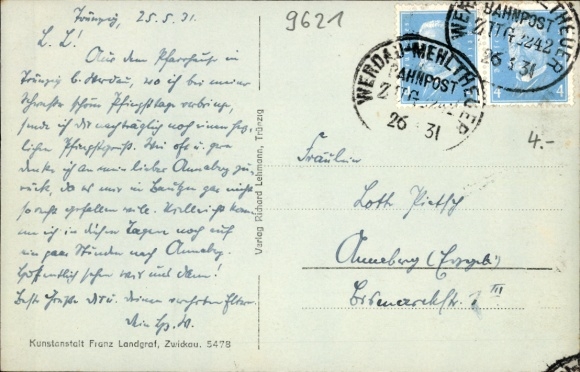 Trünzig, 25.5.31.
9621
L. L.!
Aus dem Pfarrhaus in
Trünzig b. Werdau, wo ich bei meiner
Schwester schöne Pfingsttage verbringe,
sende ich dir nachträglich noch einen herz-
lichen Pfingstgruß. Wie oft u. gern
denke ich an mein liebes Annaberg zu-
rück, da es mir in Bautzen gar nicht
so recht gefallen will. Vielleicht komme
ich in diesen Tagen noch auf
ein paar Stunden nach Annabg.
Hoffentlich sehen wir uns dann!
Beste Grüße dir u. deinen verehrten Eltern.
Dein
Kunstanstalt Franz Landgraf, Zwickau. 5478
Verlag Richard Lehmann, Trünzig
WERDAU-MEHLTHEUER
BAHNPOST
26 31
WERDAU-MEHLTHEUER
BAHNPOST
26 5 31
4
4
4.-
Fräulein
Lotte Pietsch
Annaberg (Erzgeb.)
Bismarckstr. III